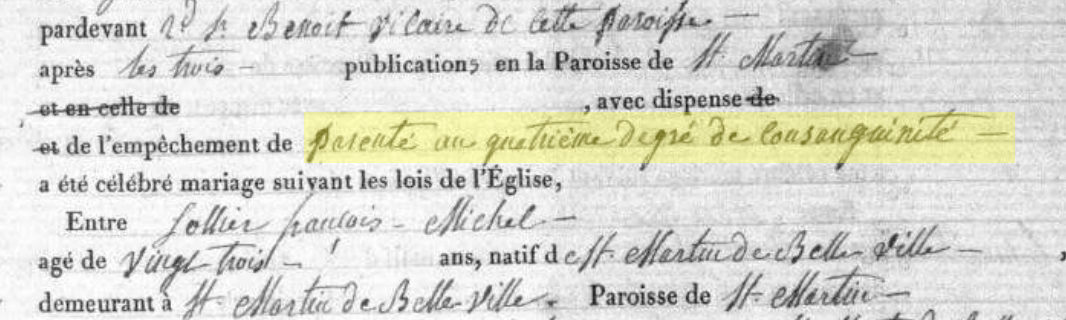 pardevant Rd Sr Benoit Vicaire de cette paroisse —
après les trois — publications en la Paroisse de St Martin —
et en celle de , avec dispense de
et de l'empêchement de parenté au quatrième degré de consanguinité —
a été célébré mariage suivant les lois de l'Église,
Entre Jollier françois - Michel —
agé de vingt trois — ans, natif de St Martin de Belle Ville — ,
demeurant à St Martin de Belle Ville . Paroisse de St Martin —